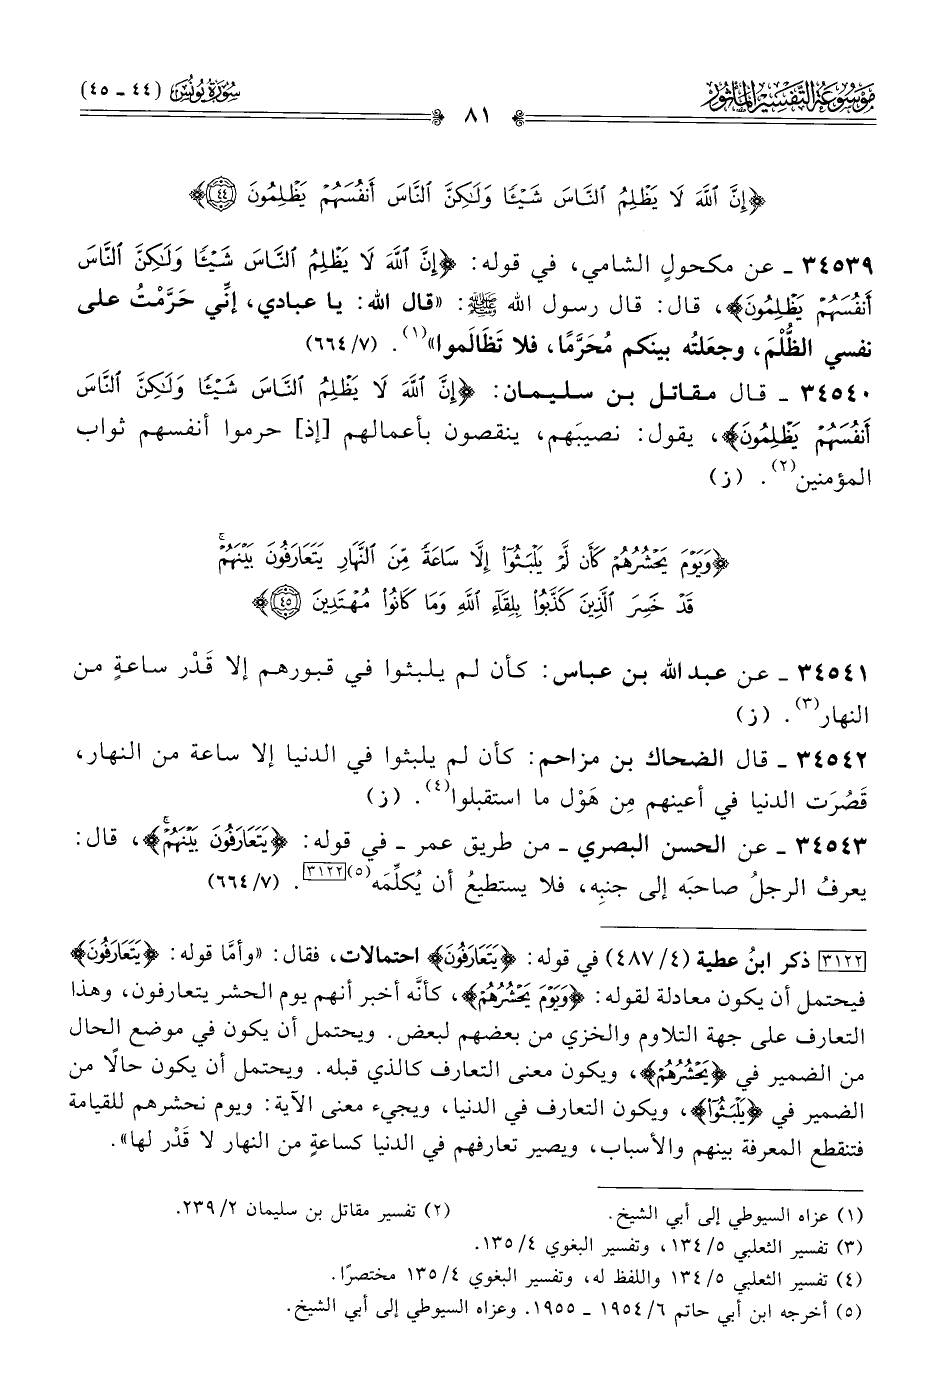 موسوعة التفسير المأثور
٨١
سورة يونس (٤٤ ـ ٤٥)
﴿إِنَّ ٱللَّهَ لَا يَظْلِمُ ٱلنَّاسَ شَيْـًٔا وَلَـٰكِنَّ ٱلنَّاسَ أَنفُسَهُمْ يَظْلِمُونَ ٤٤﴾
٣٤٥٣٩ ـ عن مكحولٍ الشامي، في قوله: ﴿إِنَّ ٱللَّهَ لَا يَظْلِمُ ٱلنَّاسَ شَيْـًٔا وَلَـٰكِنَّ ٱلنَّاسَ
أَنفُسَهُمْ يَظْلِمُونَ﴾، قال: قال رسول الله ﷺ: «قال الله: يا عبادي، إنِّي حَرَّمْتُ على
نفسي الظُّلْمَ، وجعلتُه بينكم مُحَرَّمًا، فلا تَظَالَموا»(١). (٧/ ٦٦٤)
٣٤٥٤٠ ـ قال مقاتل بن سليمان: ﴿إِنَّ ٱللَّهَ لَا يَظْلِمُ ٱلنَّاسَ شَيْـًٔا وَلَـٰكِنَّ ٱلنَّاسَ
أَنفُسَهُمْ يَظْلِمُونَ﴾، يقول: نصيبَهم، ينقصون بأعمالهم [إذ] حرموا أنفسهم ثواب
المؤمنين(٢). (ز)
﴿وَيَوْمَ يَحْشُرُهُمْ كَأَن لَّمْ يَلْبَثُوٓا۟ إِلَّا سَاعَةً مِّنَ ٱلنَّهَارِ يَتَعَارَفُونَ بَيْنَهُمْۚ
قَدْ خَسِرَ ٱلَّذِينَ كَذَّبُوا۟ بِلِقَآءِ ٱللَّهِ وَمَا كَانُوا۟ مُهْتَدِينَ ٤٥﴾
٣٤٥٤١ ـ عن عبد الله بن عباس: كأن لم يلبثوا في قبورهم إلا قَدْر ساعةٍ من
النهار(٣). (ز)
٣٤٥٤٢ ـ قال الضحاك بن مزاحم: كأن لم يلبثوا في الدنيا إلا ساعة من النهار،
قَصُرَت الدنيا في أعينهم مِن هَوْل ما استقبلوا(٤). (ز)
٣٤٥٤٣ ـ عن الحسن البصري ـ من طريق عمر ـ في قوله: ﴿يَتَعَارَفُونَ بَيْنَهُمْۚ﴾، قال:
يعرفُ الرجلُ صاحبَه إلى جنبِه، فلا يستطيعُ أن يُكلِّمَه(٥)[٣١٢٢]. (٧/ ٦٦٤)
[٣١٢٢] ذكر ابنُ عطية (٤/ ٤٨٧) في قوله: ﴿يَتَعَارَفُونَ﴾ احتمالات، فقال: «وأمَّا قوله: ﴿يَتَعَارَفُونَ﴾
فيحتمل أن يكون معادلة لقوله: ﴿وَيَوْمَ يَحْشُرُهُمْ﴾، كأنَّه أخبر أنهم يوم الحشر يتعارفون، وهذا
التعارف على جهة التلاوم والخزي من بعضهم لبعض. ويحتمل أن يكون في موضع الحال
من الضمير في ﴿يَحْشُرُهُمْ﴾، ويكون معنى التعارف كالذي قبله. ويحتمل أن يكون حالًا من
الضمير في ﴿يَلْبَثُوٓا۟﴾، ويكون التعارف في الدنيا، ويجيء معنى الآية: ويوم نحشرهم للقيامة
فتنقطع المعرفة بينهم والأسباب، ويصير تعارفهم في الدنيا كساعةٍ من النهار لا قَدْر لها».
(١) عزاه السيوطي إلى أبي الشيخ. (٢) تفسير مقاتل بن سليمان ٢/ ٢٣٩.
(٣) تفسير الثعلبي ٥/ ١٣٤، وتفسير البغوي ٤/ ١٣٥.
(٤) تفسير الثعلبي ٥/ ١٣٤ واللفظ له، وتفسير البغوي ٤/ ١٣٥ مختصرًا.
(٥) أخرجه ابن أبي حاتم ٦/ ١٩٥٤ ـ ١٩٥٥. وعزاه السيوطي إلى أبي الشيخ.